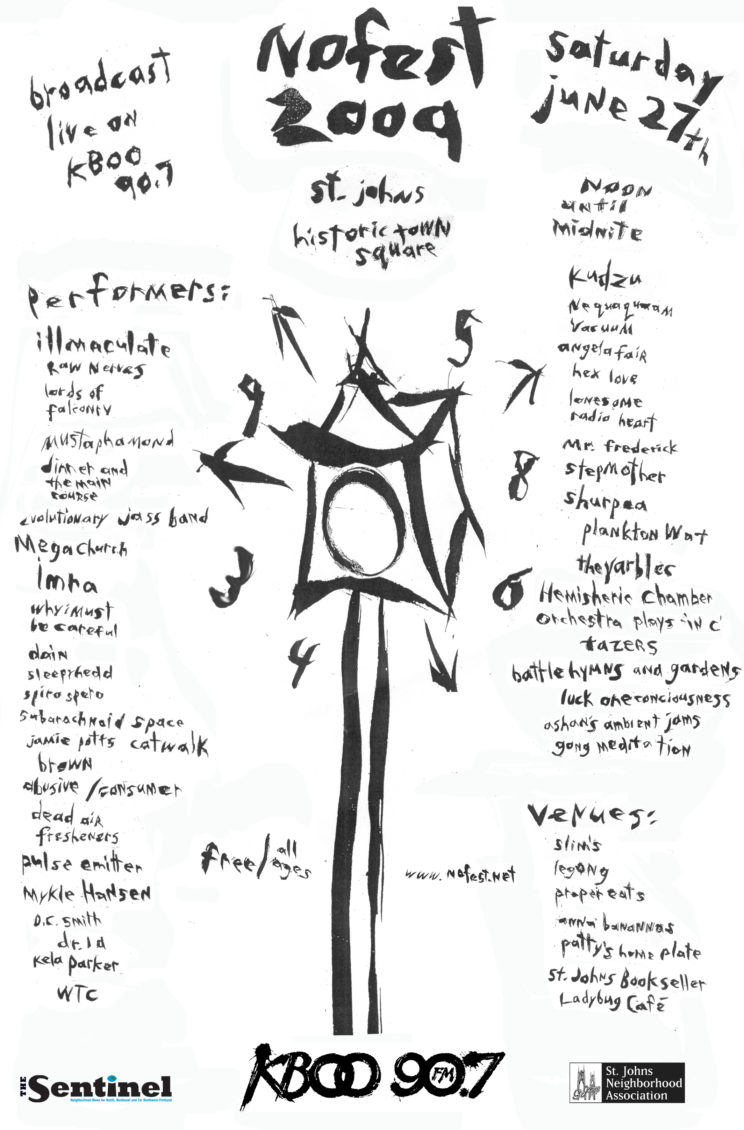 broadcast
live on
KBOO
90.7
Nofest
2009
St. johns
historic town
square
saturday
june 27th
Noon
until
midnite
performers:
illmaculate
Raw Nerves
lords of
falconry
Mustaphamond
dinner and
the main
course
evolutionary jass band
Megachurch
imra
why i must
be careful
dain
sleeprhedd
spiro spero
subarachnaid space
jamie potts catwalk
brown
abusive/consumer
dead air
fresheners
pulse emitter
Mykle Hansen
D.C. Smith
dr. id
Kela Parker
WTC
9
5
3
4
8
6
Kudzu
Nequaquam
Vacuum
angela fair
hex love
lonesome
radio heart
Mr. frederick
stepmother
shurpea
plankton Wat
theyarbles
Hemispheric chamber
orchestra plays "in C"
tazers
battle hymns and gardens
luck oneconciousness
ashan's ambient jams
gong meditation
free/all
ages
www.nofest.net
Venues:
slim's
legong
proper eats
anna banannas
patty's home plate
St. Johns Bookseller
Ladybug Café
THE Sentinel
KBOO 90.7 FM
St. Johns
Neighborhood
Association